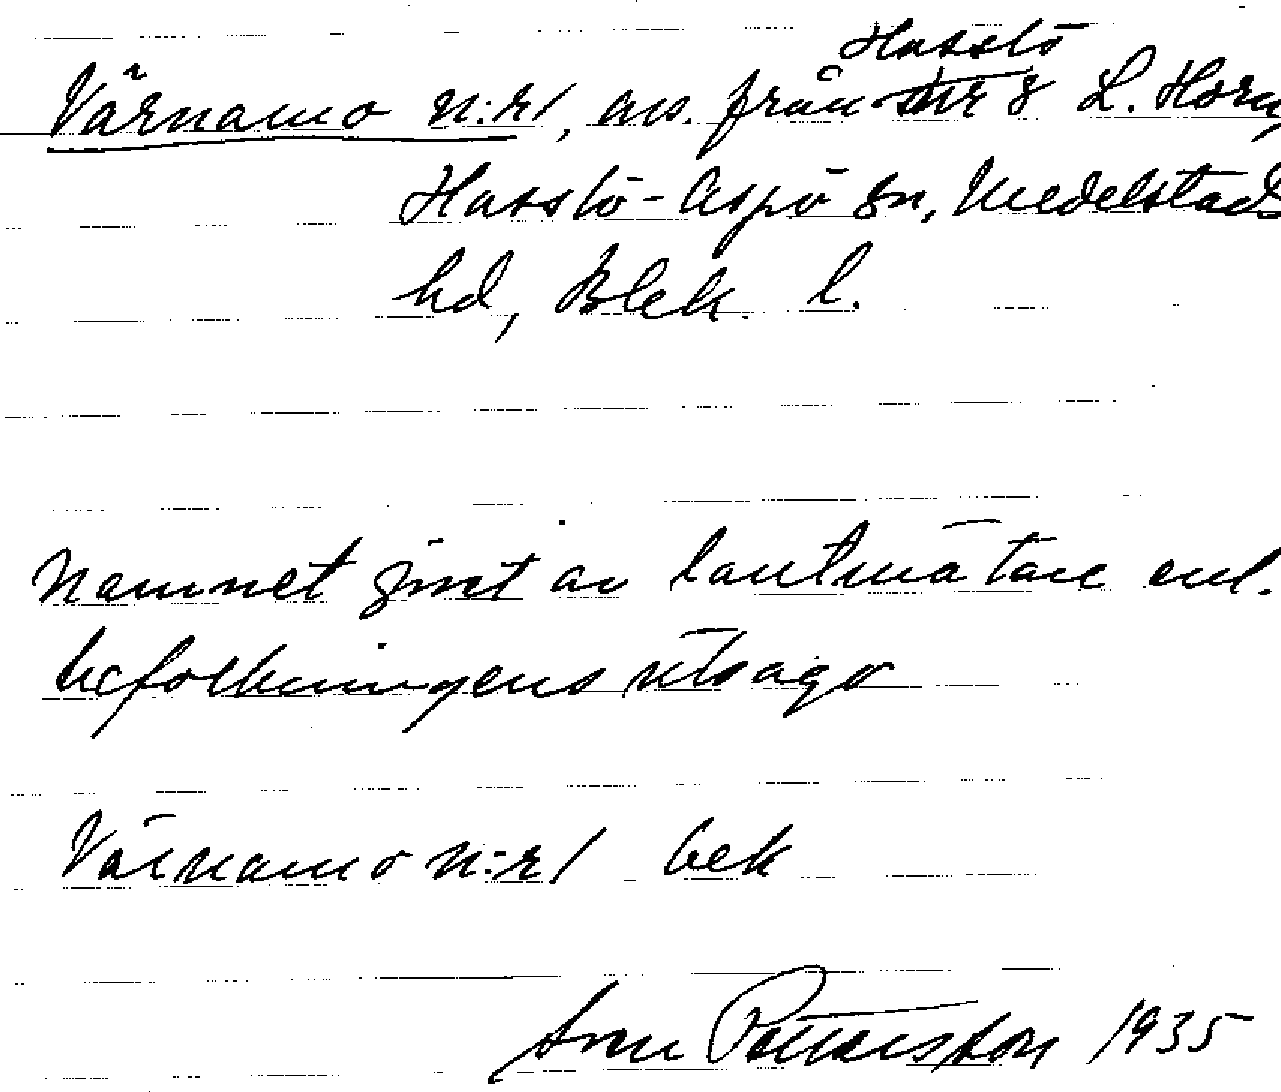 Hasslö
Värnamo n:r 1, avs. från nr 8 L. Horn,
Hasslö-Aspö sn, Medelstads
hd, Blek. l.
Namnet givet av lantmätare enl.
befolkningens utsago
Värnamo n:r 1 bek
1935